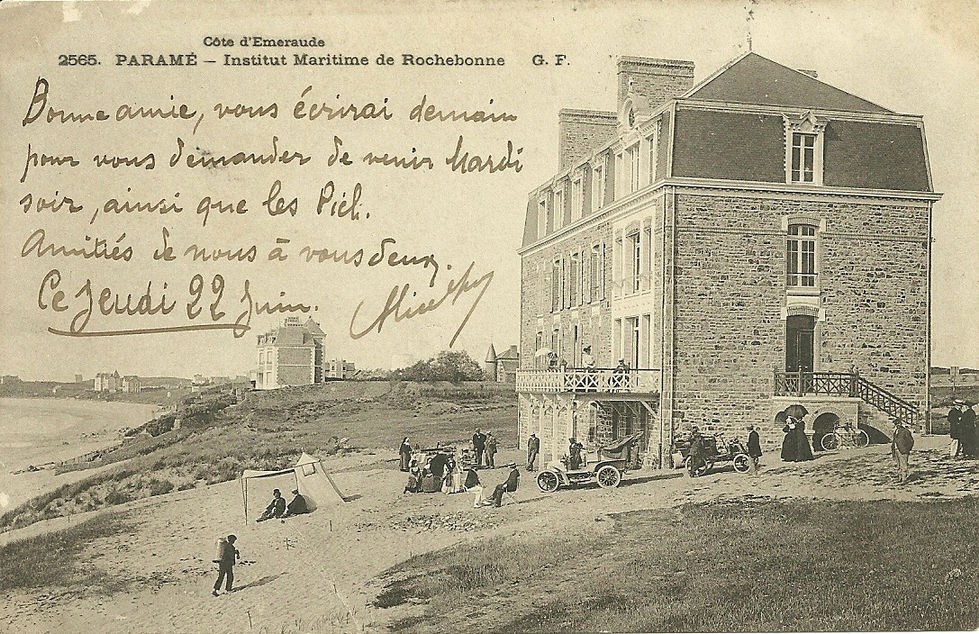 Côte d'Emeraude
2565. PARAMÉ — Institut Maritime de Rochebonne G. F.
Bonne amie, vous écrirai demain
pour vous demander de venir Mardi
soir, ainsi que les Piel.
Amitiés de nous à vous deux,
Ce Jeudi 22 Juin.